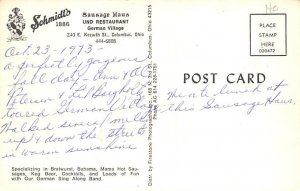 Schmidt's
1886
Sausage Haus
UND RESTAURANT
German Village
240 E. Kossuth St., Columbus, Ohio
444-6808
Oct. 23 - 1973 -
a perfectly gorgeous
fall day - Ann & Al
toured German Village
Walked several miles
up & down the streets
in warm sunshine
Specializing in Bratwurst, Bahama, Mama Hot Sau-
sages, Keg Beer, Cocktails, and Loads of Fun
with Our German Sing Along Band.
PLACE
STAMP
HERE
POST CARD
We ate lunch at
this Sausage Haus.